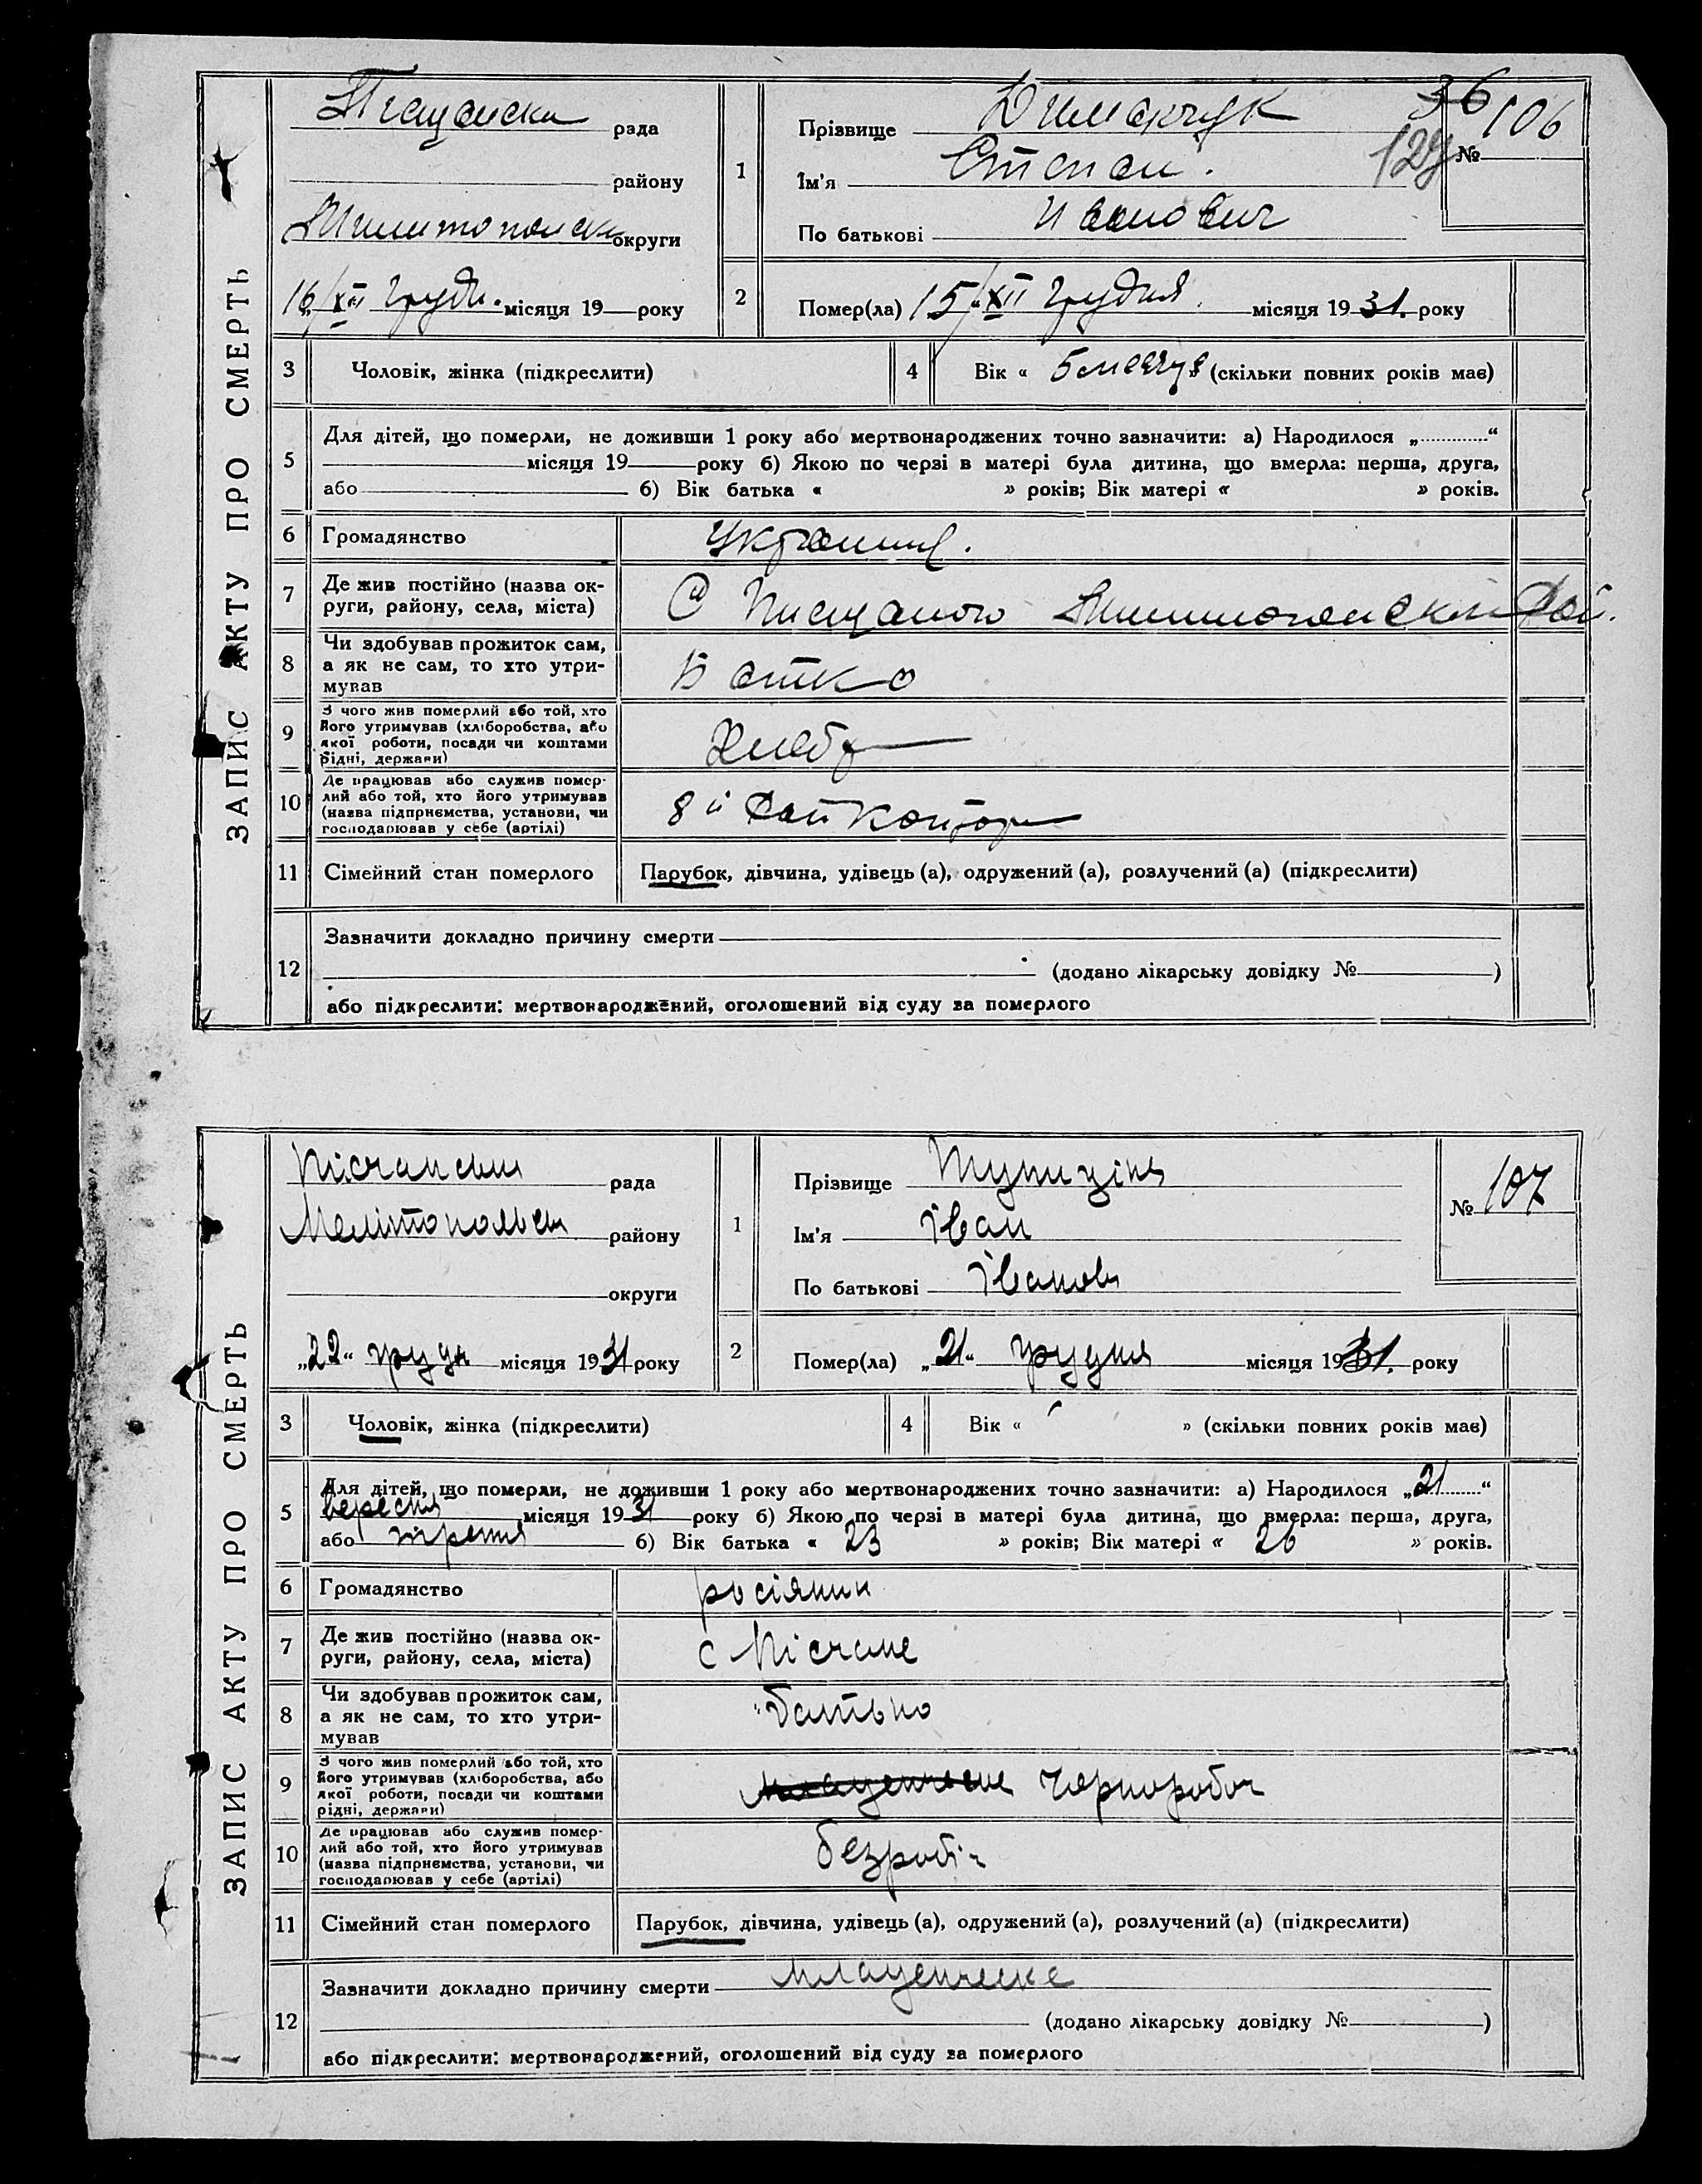 ЗАПИС АКТУ ПРО СМЕРТЬ
рада
району
округи
16/XII груд. місяця 19 року
1
Прізвище Димарчук
Ім'я Степан.
По батькові Иванович
36
106
№
2
Помер(ла) 15/XII грудня місяця 1931. року
3
Чоловік, жінка (підкреслити)
4
Вік « 5 » (скільки повних років має)
5
Для дітей, що померли, не доживши 1 року або мертвонароджених точно зазначити: а) Народилося „ “
місяця 19 року б) Якою по черзі в матері була дитина, що вмерла: перша, друга,
або б) Вік батька « » років; Вік матері « » років.
6
Громадянство
7
Де жив постійно (назва ок-
руги, району, села, міста)
С
8
Чи здобував прожиток сам,
а як не сам, то хто утри-
мував
Батко
9
З чого жив померлий або той, хто
його утримував (хліборобства, або
якої роботи, посади чи коштами
рідні, держави)
Хлебр
10
Де працював або служив помер-
лий або той, хто його утримував
(назва підприємства, установи, чи
господарював у себе (артілі)
11
Сімейний стан померлого
Парубок, дівчина, удівець (а), одружений (а), розлучений (а) (підкреслити)
12
Зазначити докладно причину смерти
(додано лікарську довідку № )
або підкреслити: мертвонароджений, оголошений від суду за померлого
ЗАПИС АКТУ ПРО СМЕРТЬ
Пісчанськ рада
Мелітопольськ району
округи
„22“ грудн місяця 1931 року
1
Прізвище Тупіцін
Ім'я Іван
По батькові Іванов
№ 107
2
Помер(ла) „21“ грудня місяця 1931. року
3
Чоловік, жінка (підкреслити)
4
Вік « » (скільки повних років має)
5
Для дітей, що померли, не доживши 1 року або мертвонароджених точно зазначити: а) Народилося „21“
вересня місяця 1931 року б) Якою по черзі в матері була дитина, що вмерла: перша, друга,
або третя б) Вік батька « 23 » років; Вік матері « 26 » років.
6
Громадянство
росіянин
7
Де жив постійно (назва ок-
руги, району, села, міста)
с Пісчане
8
Чи здобував прожиток сам,
а як не сам, то хто утри-
мував
батько
9
З чого жив померлий або той, хто
його утримував (хліборобства, або
якої роботи, посади чи коштами
рідні, держави)
чорнороботч
10
Де працював або служив помер-
лий або той, хто його утримував
(назва підприємства, установи, чи
господарював у себе (артілі)
безробіт
11
Сімейний стан померлого
Парубок, дівчина, удівець (а), одружений (а), розлучений (а) (підкреслити)
12
Зазначити докладно причину смерти младенческе
(додано лікарську довідку № )
або підкреслити: мертвонароджений, оголошений від суду за померлого